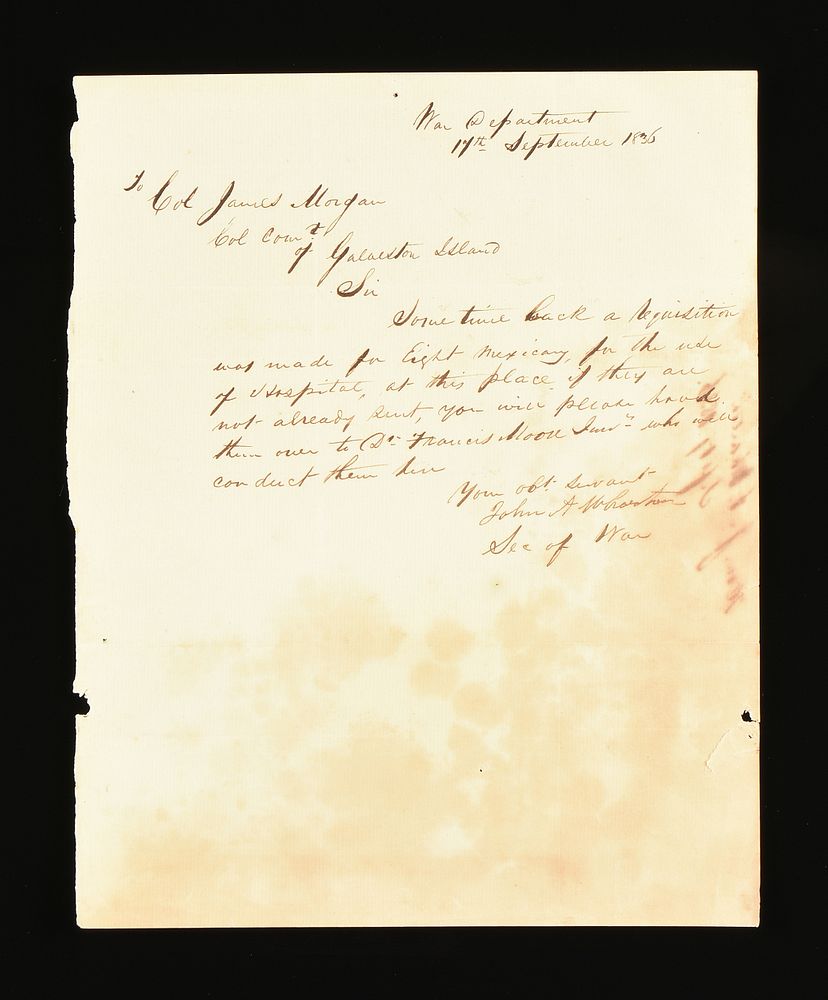 War Department
17th September 1836
To
Col James Morgan
Col Comdt
of Galveston Island
Sir
Some time back a requisition
was made for Eight Mexicans, for the use
of Hospital, at this place, if they are
not already sent, you will please hand
them over to Dr Francis Moore Junr who will
conduct them here
Your obt. servant
John A Wharton
Sec of War